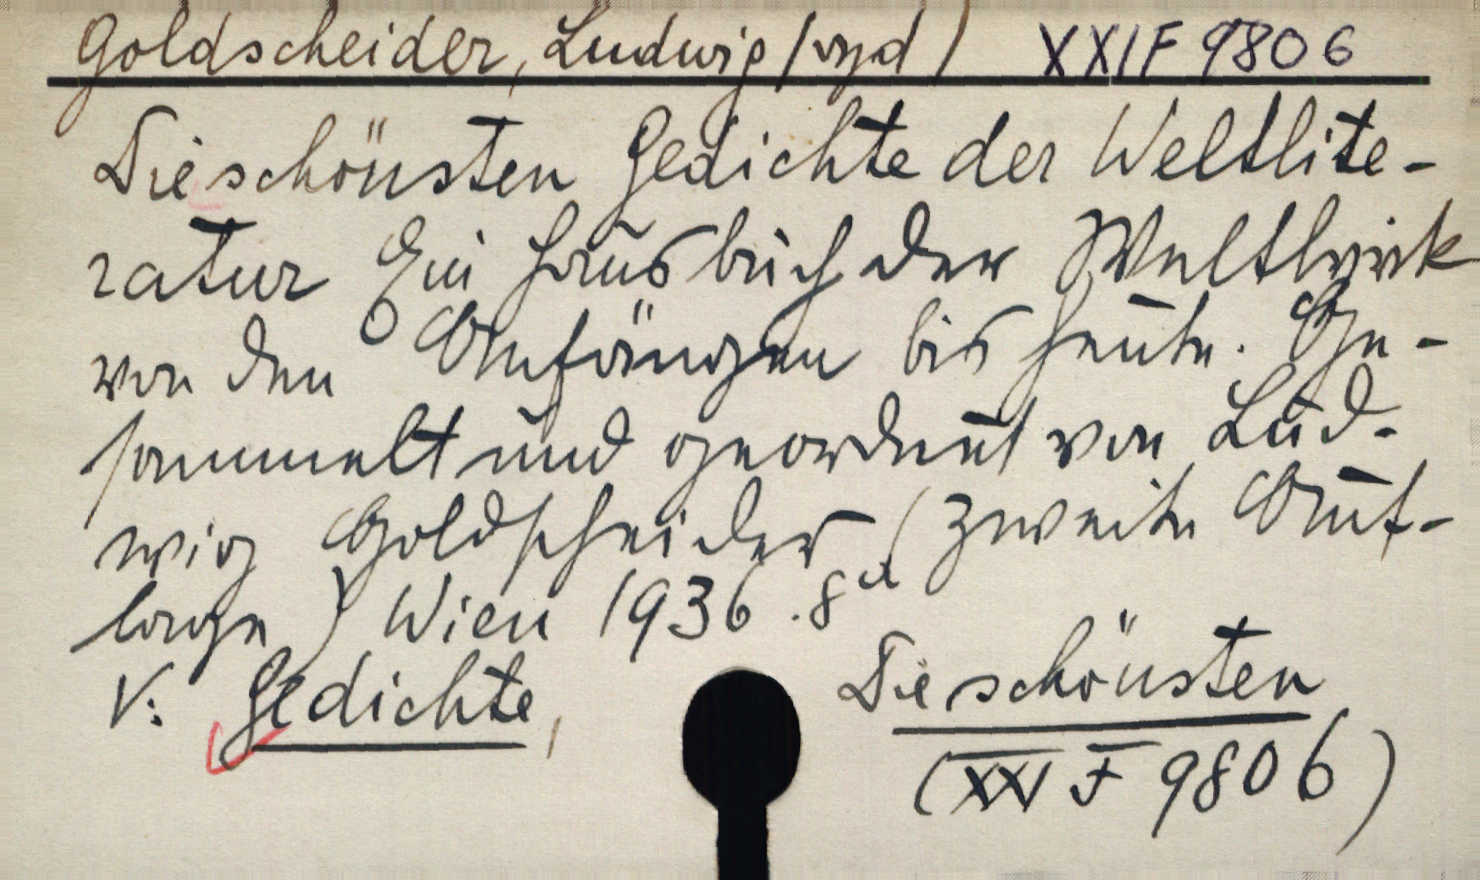 Goldscheider, Ludwig (vyd) XXIF 9806
Die schönsten Gedichte der Weltlite-
ratur Ein Hausbuch der Weltlyrik
von den Anfängen bis heute. Ge-
sammelt und geordnet von Lud-
wig Goldscheider (Zweite Auf-
lage) Wien 1936. 8°
V: Gedichte, Die schönsten
(XXI F 9806)